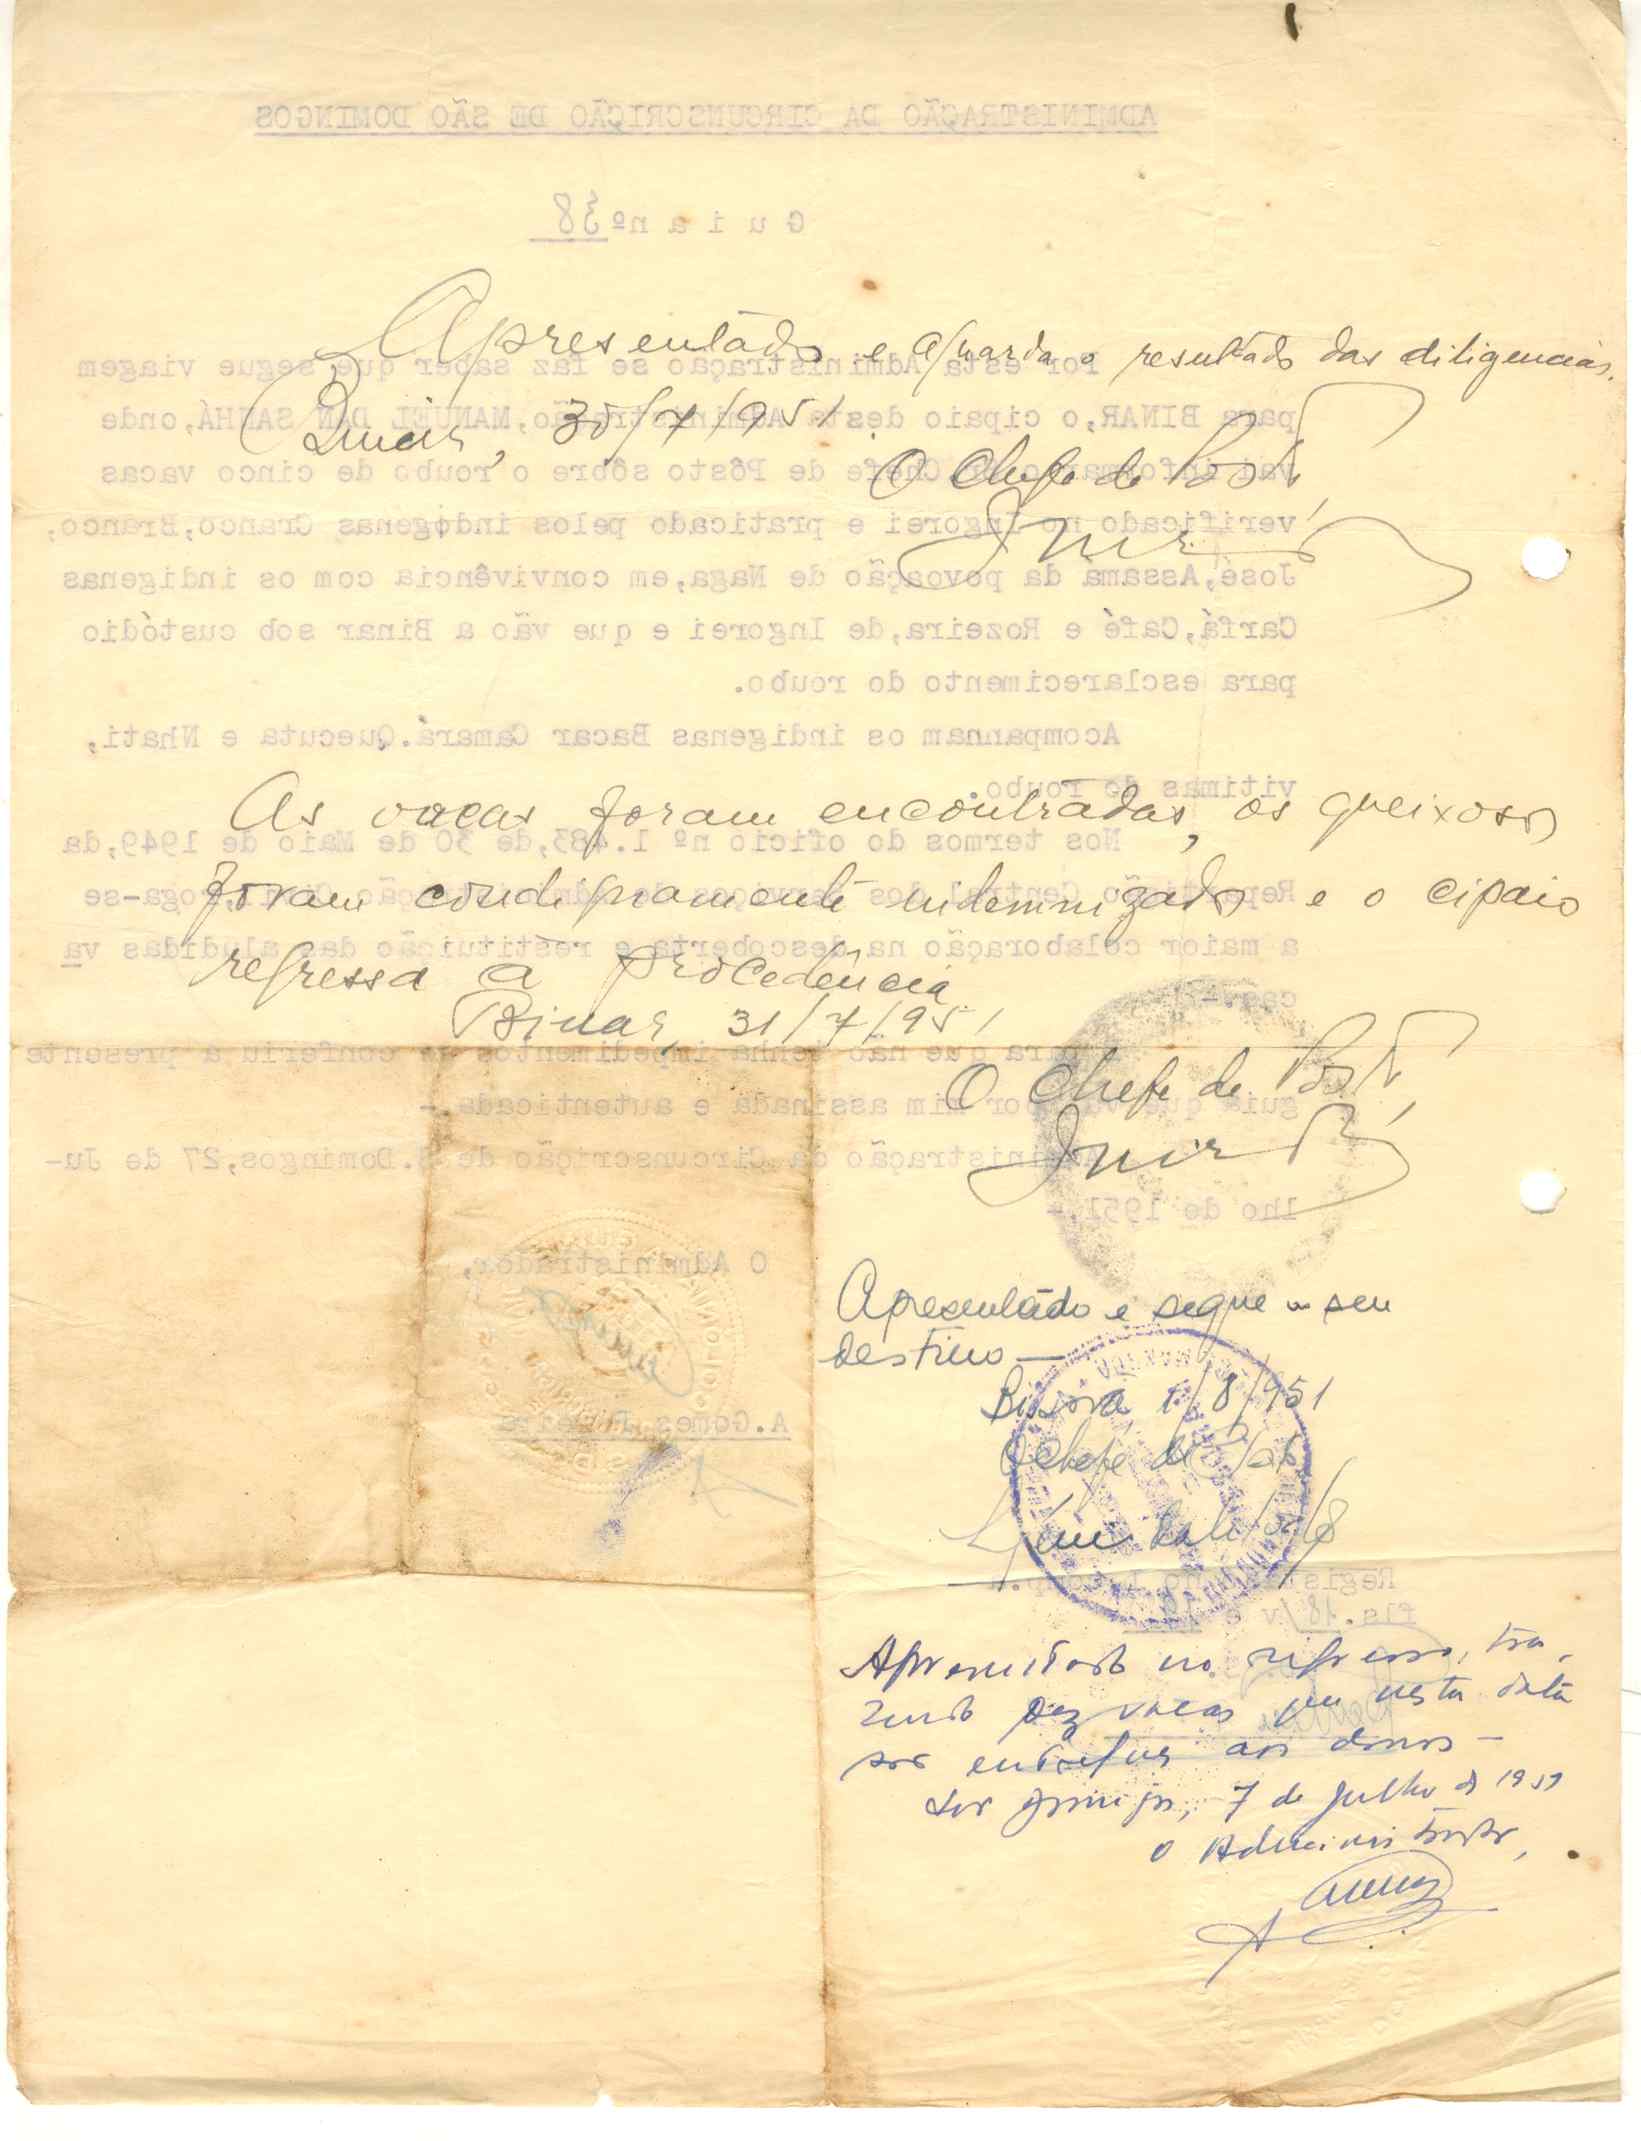 ADMINISTRAÇÃO DA CIRCUNSCRIÇÃO DE SÃO DOMINGOS
G u i a nº 38
Apresentado e aguarda o resultado das diligencias.
Binar, 30/7/951.
O Chefe de Posto,
Por esta Administração se faz saber que segue viagem
para BINAR, o cipaio desta Administração, MANUEL DAN SANHÁ, onde
vai informar o Chefe de Pôsto sôbre o roubo de cinco vacas
verificado no Ingorei e praticado pelos indígenas Cranco, Branco,
José, Assama da povoação de Naga, em convivência com os indigenas
Carfá, Café e Rozeira, de Ingorei e que vão a Binar sob custódio
para esclarecimento do roubo.
Acompanham os indigenas Bacar Camará. Quecuta e Nhati,
vitimas do roubo.
As vacas foram encontradas, os queixosos
foram condignamente indemnizados e o cipaio
regressa a procedência
Binar, 31/7/951
O Chefe de Posto,
Nos termos do oficio nº 1.483, de 30 de Maio de 1949, da
Repartição Central dos Serviços de Administração Civil, roga-se
a maior colaboração na descoberta e restituição das aludidas va
cas.-
para que não tenha impedimentos se conferiu a presente
guia que vai por mim assinada e autenticada.-
Administração da Circunscrição de S. Domingos, 27 de Ju-
lho de 1951.-
O Administrador,
A. Gomes Pereira
Apresentado e segue ao seu
destino —
Bissorã, 1/8/951
O Chefe de Posto
fls. 18/v e 19
Apresentado no regresso, tra
zendo dez vacas que nesta data
são entregues aos donos —
São Domingos, 7 de Julho de 1951
O Administrador,